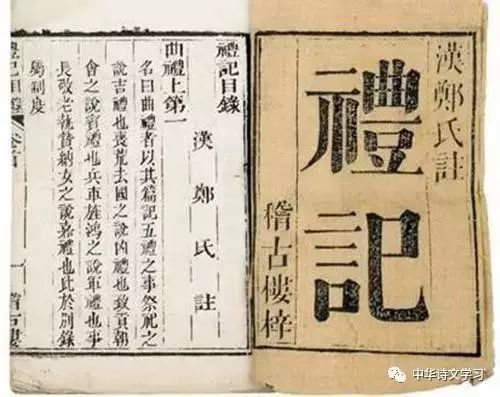 漢鄭氏註
禮記
稽古樓梓
禮記目錄
漢鄭氏註
曲禮上第一
名曰曲禮者以其篇記五禮之事祭祀之
說吉禮也喪荒去國之說凶禮也致貢朝
會之說賓禮也兵車旌鴻之說軍禮也事
長敬老執贄納女之說嘉禮也此於別錄
屬制度
禮記目錄
一
稽古樓
中华诗文学习